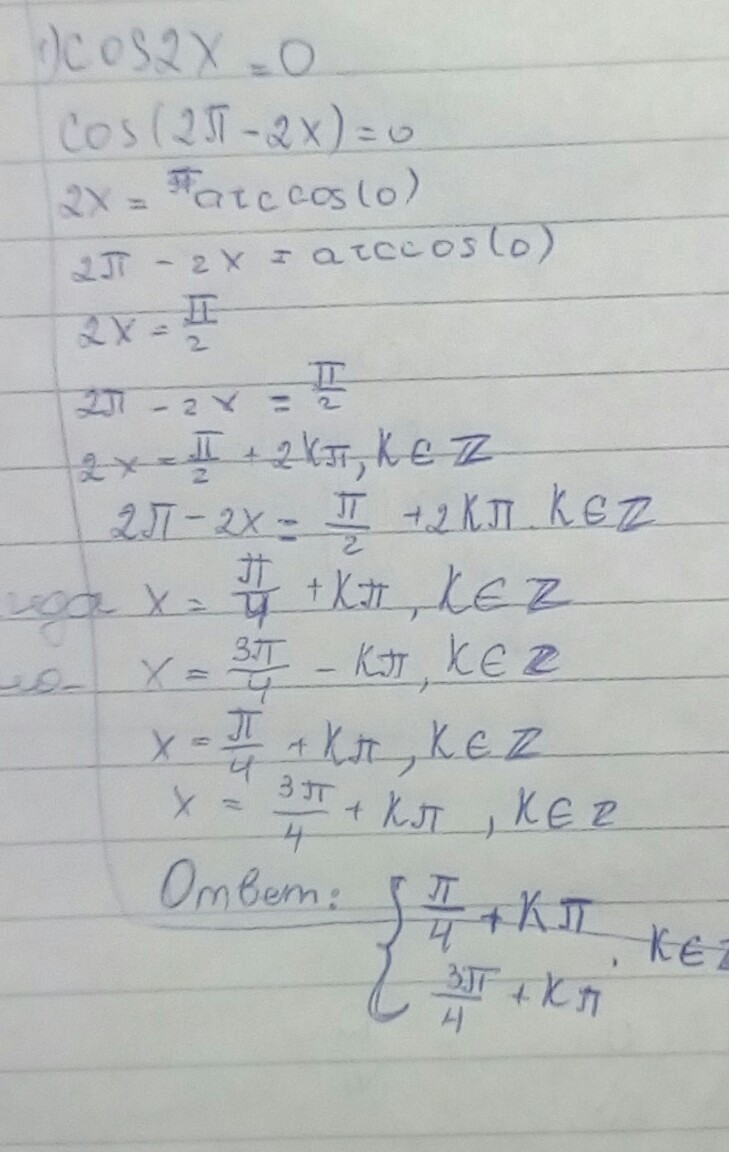 1) cos2x = 0
cos(2π - 2x) = 0
2x = arccos(0)
2π - 2x = arccos(0)
2x = π/2
2π - 2x = π/2
2x = π/2 + 2Kπ, K ∈ Z
2π - 2x = π/2 + 2Kπ. K ∈ Z
x = π/4 + Kπ, K ∈ Z
x = 3π/4 - Kπ, K ∈ Z
x = π/4 + Kπ, K ∈ Z
x = 3π/4 + Kπ, K ∈ Z
Ответ: { π/4 + Kπ
3π/4 + Kπ . K ∈ Z